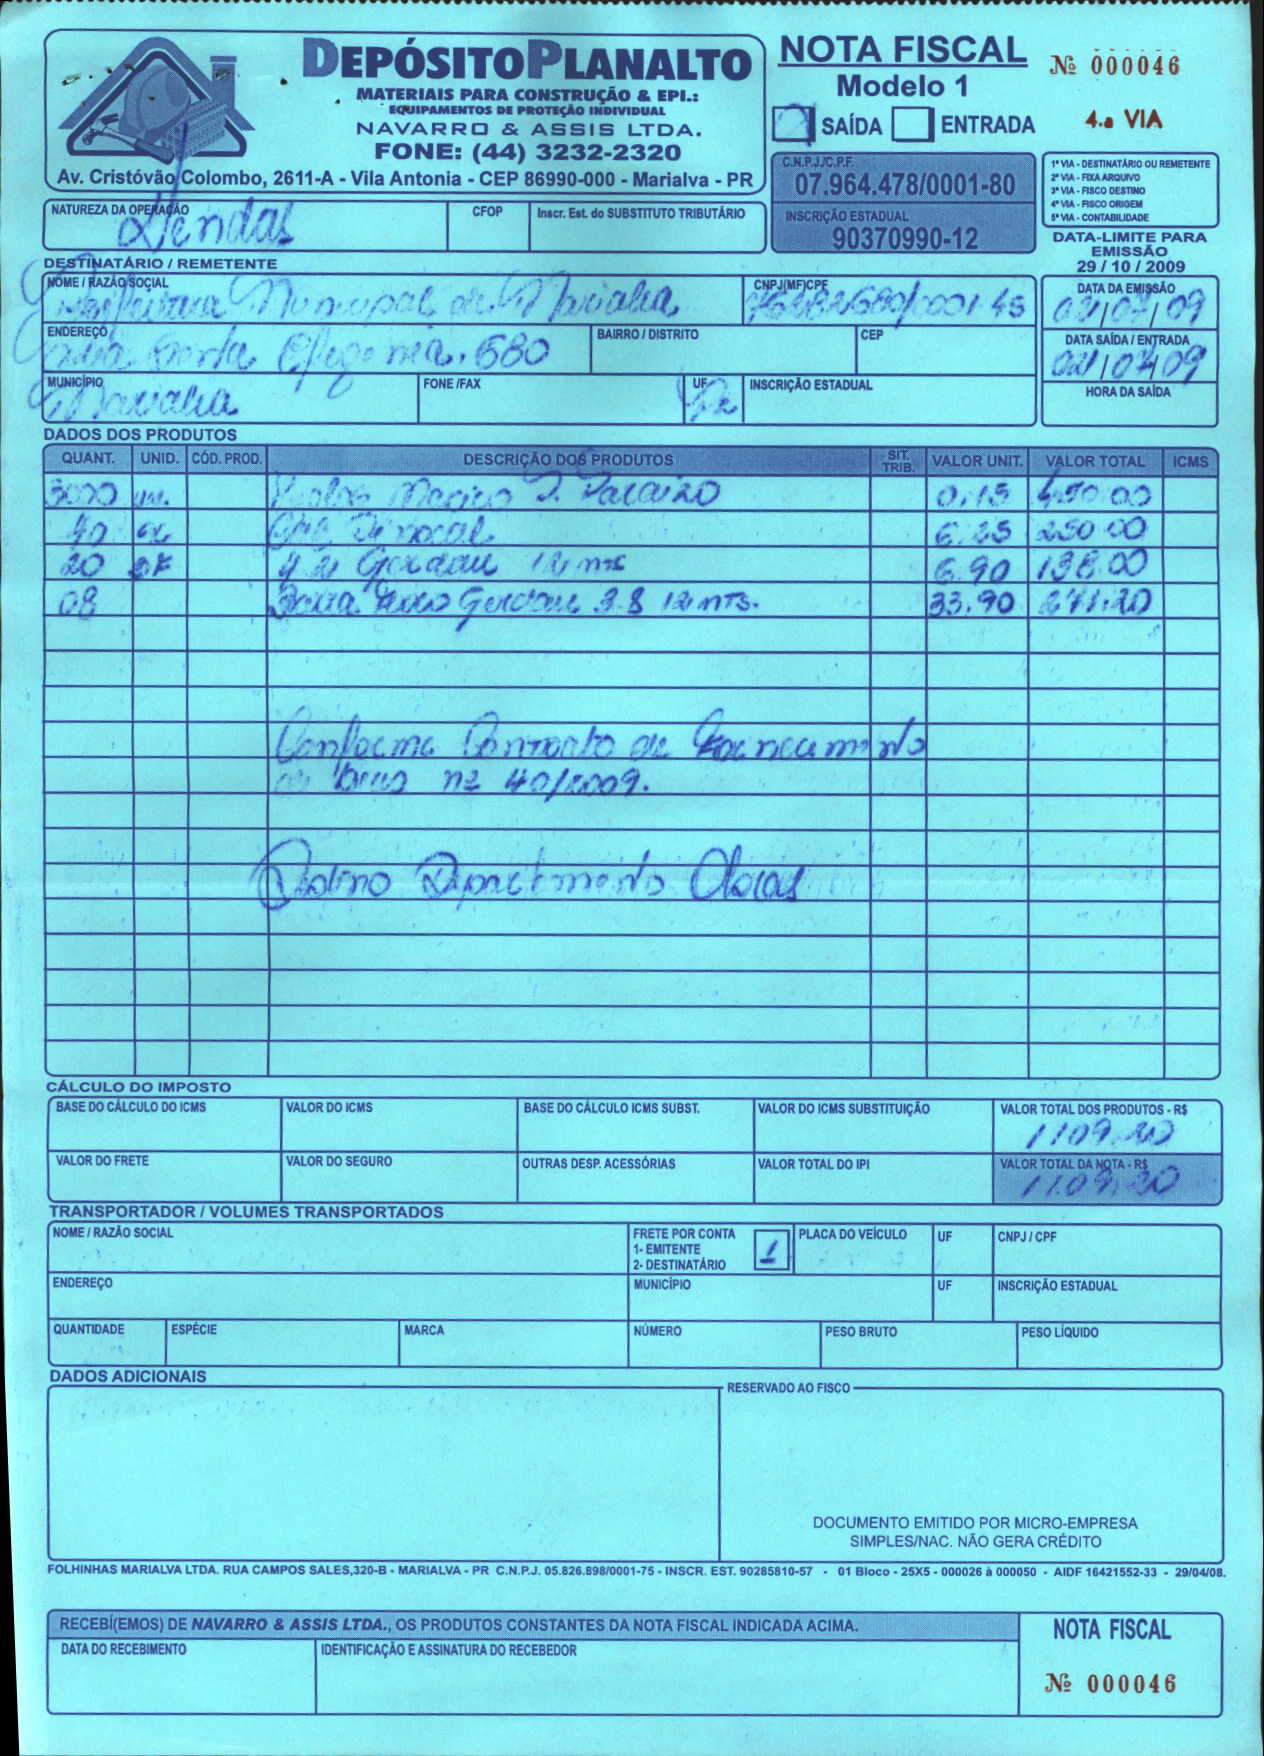 DEPÓSITO PLANALTO
MATERIAIS PARA CONSTRUÇÃO & EPI.:
EQUIPAMENTOS DE PROTEÇÃO INDIVIDUAL
NAVARRO & ASSIS LTDA.
FONE: (44) 3232-2320
Av. Cristóvão Colombo, 2611-A - Vila Antonia - CEP 86990-000 - Marialva - PR
NOTA FISCAL
Modelo 1
SAÍDA ENTRADA
Nº 000046
4.a VIA
C.N.P.J./C.P.F.
07.964.478/0001-80
INSCRIÇÃO ESTADUAL
90370990-12
1ª VIA - DESTINATÁRIO OU REMETENTE
2ª VIA - FIXA ARQUIVO
3ª VIA - FISCO DESTINO
4ª VIA - FISCO ORIGEM
5ª VIA - CONTABILIDADE
DATA-LIMITE PARA
EMISSÃO
29 / 10 / 2009
NATUREZA DA OPERAÇÃO CFOP Inscr. Est. do SUBSTITUTO TRIBUTÁRIO
Vendas
DESTINATÁRIO / REMETENTE
NOME / RAZÃO SOCIAL CNPJ(MF)CPF DATA DA EMISSÃO
Prefeitura Municipal de Marialva 76282680/0001-45 02/07/09
ENDEREÇO BAIRRO / DISTRITO CEP DATA SAÍDA / ENTRADA
Rua Santa Efigenia, 680 02/07/09
MUNICÍPIO FONE /FAX UF INSCRIÇÃO ESTADUAL HORA DA SAÍDA
Marialva Pr
DADOS DOS PRODUTOS
QUANT. UNID. CÓD. PROD. DESCRIÇÃO DOS PRODUTOS SIT. TRIB. VALOR UNIT. VALOR TOTAL ICMS
3000 un. 0.15 450.00
40 6.25 250.00
20 4.2 Gerdau 12 mts 6.90 138.00
08 Barra Gerdau 3.8 12 mts. 33.90 271.20
Conforme Contrato de Fornecimento
de nº 40/2009.
Destino Departamento Obras
CÁLCULO DO IMPOSTO
BASE DO CÁLCULO DO ICMS VALOR DO ICMS BASE DO CÁLCULO ICMS SUBST. VALOR DO ICMS SUBSTITUIÇÃO VALOR TOTAL DOS PRODUTOS - R$
1109.20
VALOR DO FRETE VALOR DO SEGURO OUTRAS DESP. ACESSÓRIAS VALOR TOTAL DO IPI VALOR TOTAL DA NOTA - R$
1109.20
TRANSPORTADOR / VOLUMES TRANSPORTADOS
NOME / RAZÃO SOCIAL FRETE POR CONTA 1- EMITENTE 2- DESTINATÁRIO 1 PLACA DO VEÍCULO UF CNPJ / CPF
ENDEREÇO MUNICÍPIO UF INSCRIÇÃO ESTADUAL
QUANTIDADE ESPÉCIE MARCA NÚMERO PESO BRUTO PESO LÍQUIDO
DADOS ADICIONAIS
RESERVADO AO FISCO
DOCUMENTO EMITIDO POR MICRO-EMPRESA
SIMPLES/NAC. NÃO GERA CRÉDITO
FOLHINHAS MARIALVA LTDA. RUA CAMPOS SALES,320-B - MARIALVA - PR C.N.P.J. 05.826.898/0001-75 - INSCR. EST. 90285810-57 - 01 Bloco - 25X5 - 000026 à 000050 - AIDF 16421552-33 - 29/04/08.
RECEBÍ(EMOS) DE NAVARRO & ASSIS LTDA., OS PRODUTOS CONSTANTES DA NOTA FISCAL INDICADA ACIMA.
DATA DO RECEBIMENTO IDENTIFICAÇÃO E ASSINATURA DO RECEBEDOR
NOTA FISCAL
Nº 000046